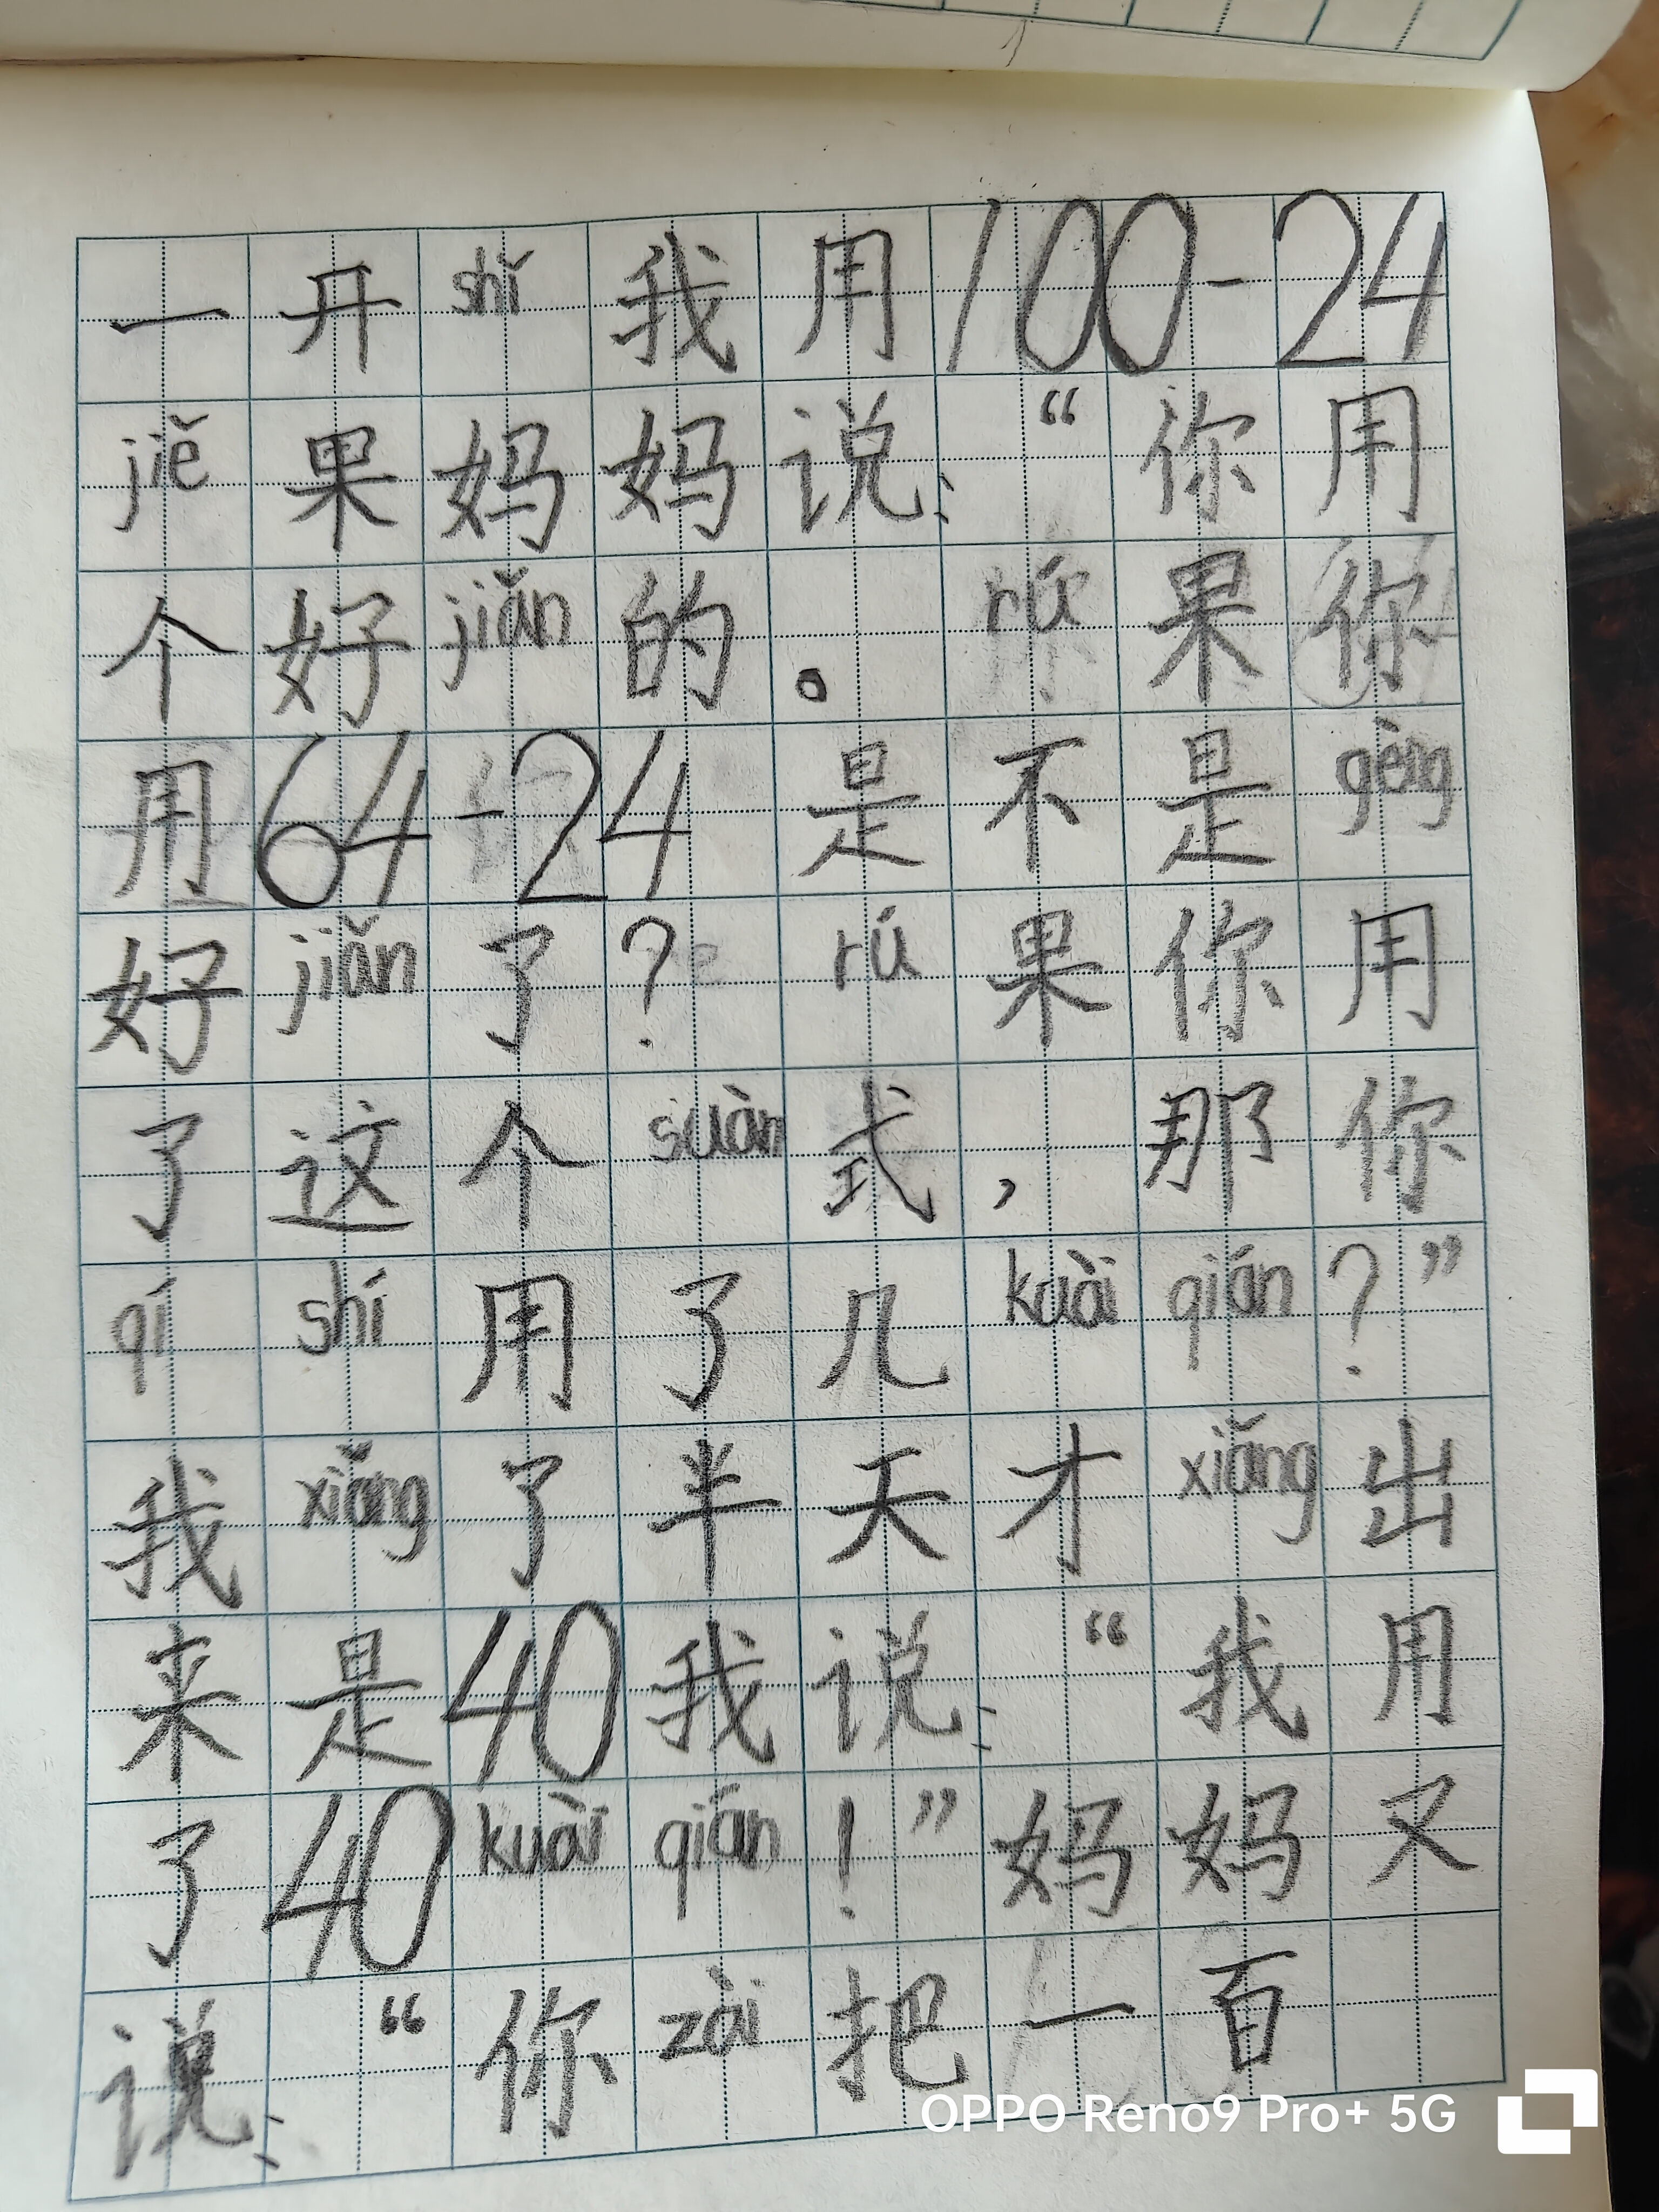 一开shǐ我用100-24
jiě果妈妈说:“你用
个好jiǎn的。rú果你
用64-24是不是gèng
好jiǎn了?rú果你用
了这个suàn式,那你
qí shí用了几kuài qián?”
我xiǎng了半天才xiǎng出
来是40我说:“我用
了40kuài qián!”妈妈又
说:“你zài把一百
OPPO Reno9 Pro+ 5G